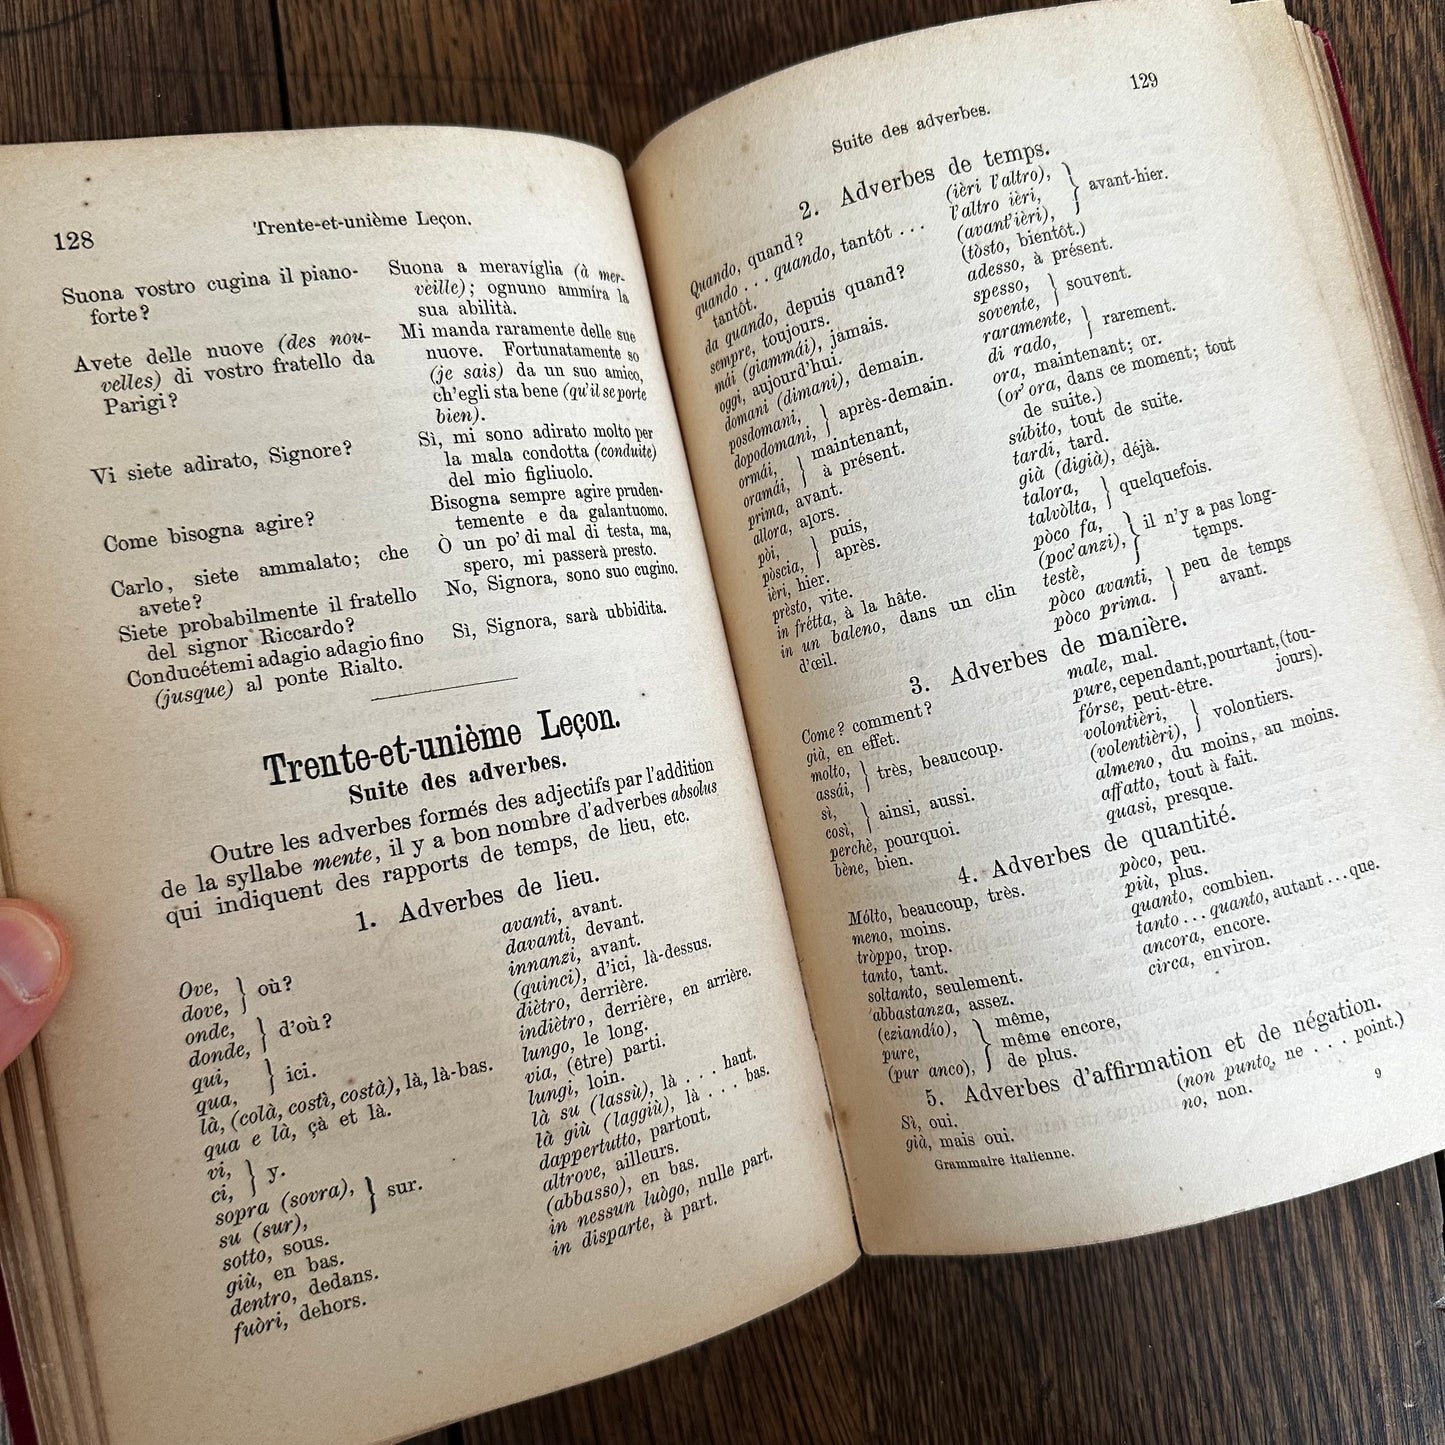 128
Trente-et-unième Leçon.
Suona vostro cugina il piano-
forte?
Avete delle nuove (des nou-
velles) di vostro fratello da
Parigi?
Vi siete adirato, Signore?
Come bisogna agire?
Carlo, siete ammalato; che
avete?
Siete probabilmente il fratello
del signor Riccardo?
Conducétemi adagio adagio fino
(jusque) al ponte Rialto.
Suona a meravíglia (à mer-
veille); ognuno ammíra la
sua abilità.
Mi manda raramente delle sue
nuove. Fortunatamente so
(je sais) da un suo amico,
ch'egli sta bene (qu'il se porte
bien).
Sì, mi sono adirato molto per
la mala condotta (conduite)
del mio figliuolo.
Bisogna sempre agire pruden-
temente e da galantuomo.
Ò un po' di mal di testa, ma,
spero, mi passerà presto.
No, Signora, sono suo cugino.
Sì, Signora, sarà ubbidita.
Trente-et-unième Leçon.
Suite des adverbes.
Outre les adverbes formés des adjectifs par l'addition
de la syllabe mente, il y a bon nombre d'adverbes absolus
qui indiquent des rapports de temps, de lieu, etc.
1. Adverbes de lieu.
Ove,
dove, } où?
onde,
donde, } d'où?
qui,
qua, } ici.
là, (colà, costì, costà), là, là-bas.
qua e là, çà et là.
vi,
ci, } y.
sopra (sovra),
su (sur), } sur.
sotto, sous.
giù, en bas.
dentro, dedans.
fuòri, dehors.
avanti, avant.
davanti, devant.
innanzi, avant.
(quinci), d'ici, là-dessus.
diètro, derrière.
indiètro, derrière, en arrière.
lungo, le long.
via, (être) parti.
lungi, loin.
là su (lassù), là . . . haut.
là giù (laggiù), là . . . bas.
dappertutto, partout.
altrove, ailleurs.
(abbasso), en bas.
in nessun luògo, nulle part.
in disparte, à part.
129
Suite des adverbes.
2. Adverbes de temps.
Quando, quand?
quando . . . quando, tantôt . . .
tantôt.
da quando, depuis quand?
sempre, toujours.
mái (giammái), jamais.
oggi, aujourd'hui.
domani (dimani), demain.
posdomani,
dopodomani, } après-demain.
ormái, } maintenant,
oramái, } à présent.
prima, avant.
allora, alors.
pòi, } puis,
pòscia, } après.
ièri, hier.
prèsto, vite.
in frétta, à la hâte.
in un baleno, dans un clin
d'œil.
(ièri l'altro),
l'altro ièri,
(avant'ièri), } avant-hier.
(tòsto, bientôt.)
adesso, à présent.
spesso,
sovente, } souvent.
raramente,
di rado, } rarement.
ora, maintenant; or.
(or' ora, dans ce moment; tout
de suite.)
súbito, tout de suite.
tardi, tard.
già (digià), déjà.
talora,
talvòlta, } quelquefois.
pòco fa,
(poc'anzi), } il n'y a pas long-
testè, temps.
pòco avanti, } peu de temps
pòco prima. } avant.
3. Adverbes de manière.
Come? comment?
già, en effet.
molto,
assái, } très, beaucoup.
sì,
così, } ainsi, aussi.
perchè, pourquoi.
bène, bien.
male, mal.
pure, cependant, pourtant, (tou-
jours).
fórse, peut-être.
volontièri,
(volentièri), } volontiers.
almeno, du moins, au moins.
affatto, tout à fait.
quasi, presque.
4. Adverbes de quantité.
Mólto, beaucoup, très.
meno, moins.
tròppo, trop.
tanto, tant.
soltanto, seulement.
abbastanza, assez.
(eziandío), } même,
pure, } même encore,
(pur anco), } de plus.
pòco, peu.
più, plus.
quanto, combien.
tanto . . . quanto, autant . . . que.
ancora, encore.
circa, environ.
5. Adverbes d'affirmation et de négation.
Sì, oui.
già, mais oui.
(non punto, ne . . . point.)
no, non.
Grammaire italienne.
9